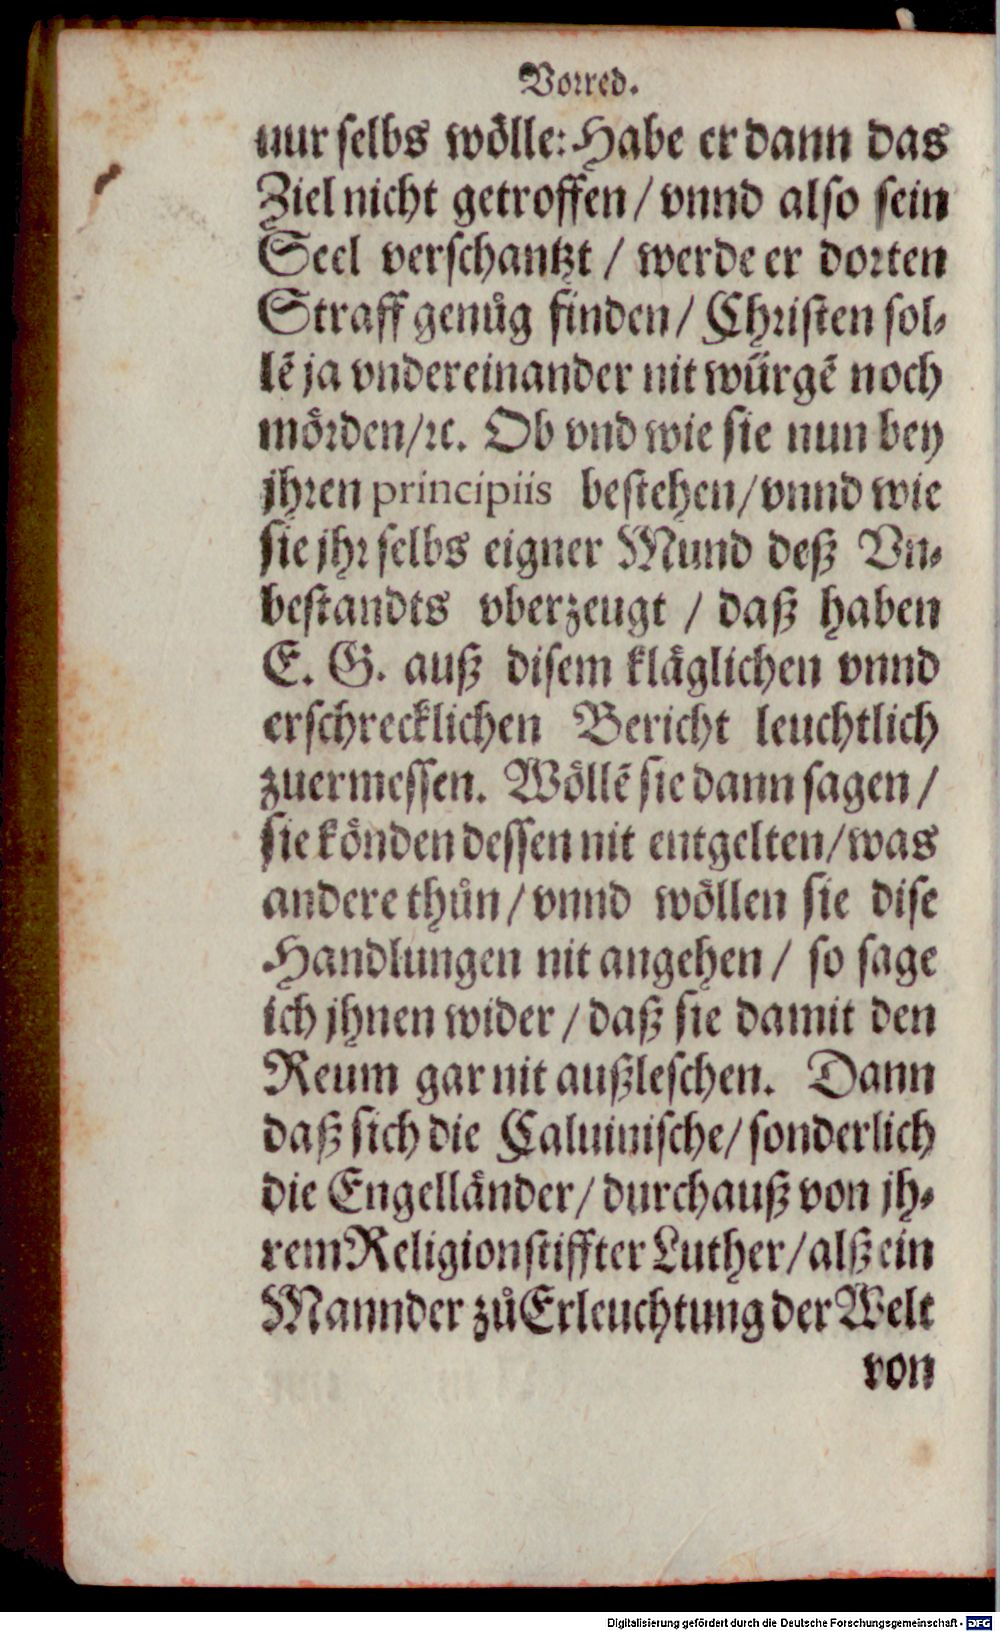 Vorred.
nur selbs wölle: Habe er dann das
Ziel nicht getroffen / vnnd also sein
Seel verschantzt / werde er dorten
Straff genůg finden / Christen sol⸗
lẽ ja vndereinander nit würgẽ noch
mörden / ꝛc. Ob vnd wie sie nun bey
jhren principiis bestehen / vnnd wie
sie jhr selbs eigner Mund deß Vn⸗
bestandts vberzeugt / daß haben
E. G. auß disem kläglichen vnnd
erschrecklichen Bericht leuchtlich
zuermessen. Wöllẽ sie dann sagen /
sie könden dessen nit entgelten / was
andere thůn / vnnd wöllen sie dise
Handlungen nit angehen / so sage
ich jhnen wider / daß sie damit den
Reum gar nit außleschen. Dann
daß sich die Caluinische / sonderlich
die Engelländer / durchauß von jh⸗
rem Religionstiffter Luther / alß ein
Mann der zů Erleuchtung der Welt
von
Digitalisierung gefördert durch die Deutsche Forschungsgemeinschaft - DFG